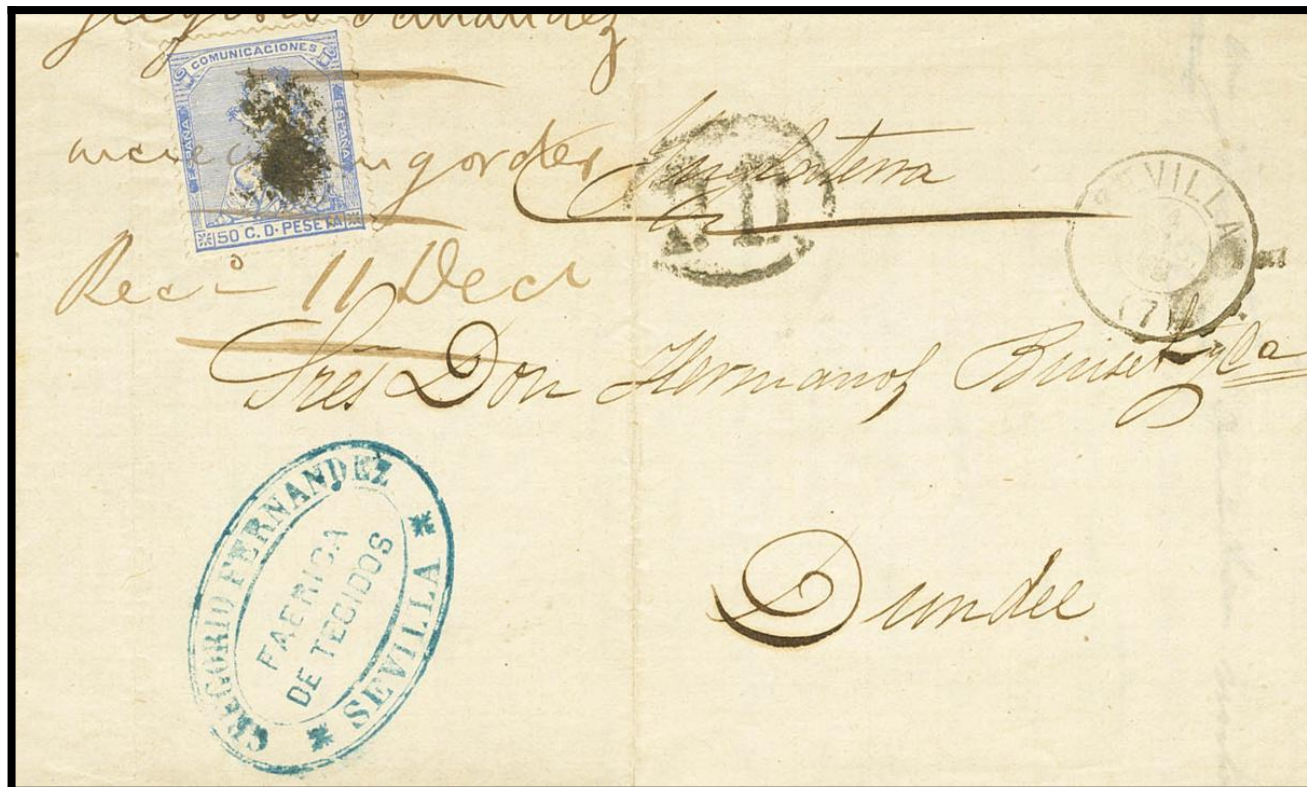 Gregorio Fernandez
COMUNICACIONES
ESPAÑA
ESPAÑA
50 C. D. PESETA
order
Inglaterra
P.D.
SEVILLA
Rec^d 11 Dec^r
Sres Don Hermanos
GREGORIO FERNANDEZ
FABRICA
DE TEGIDOS
SEVILLA
Dundee